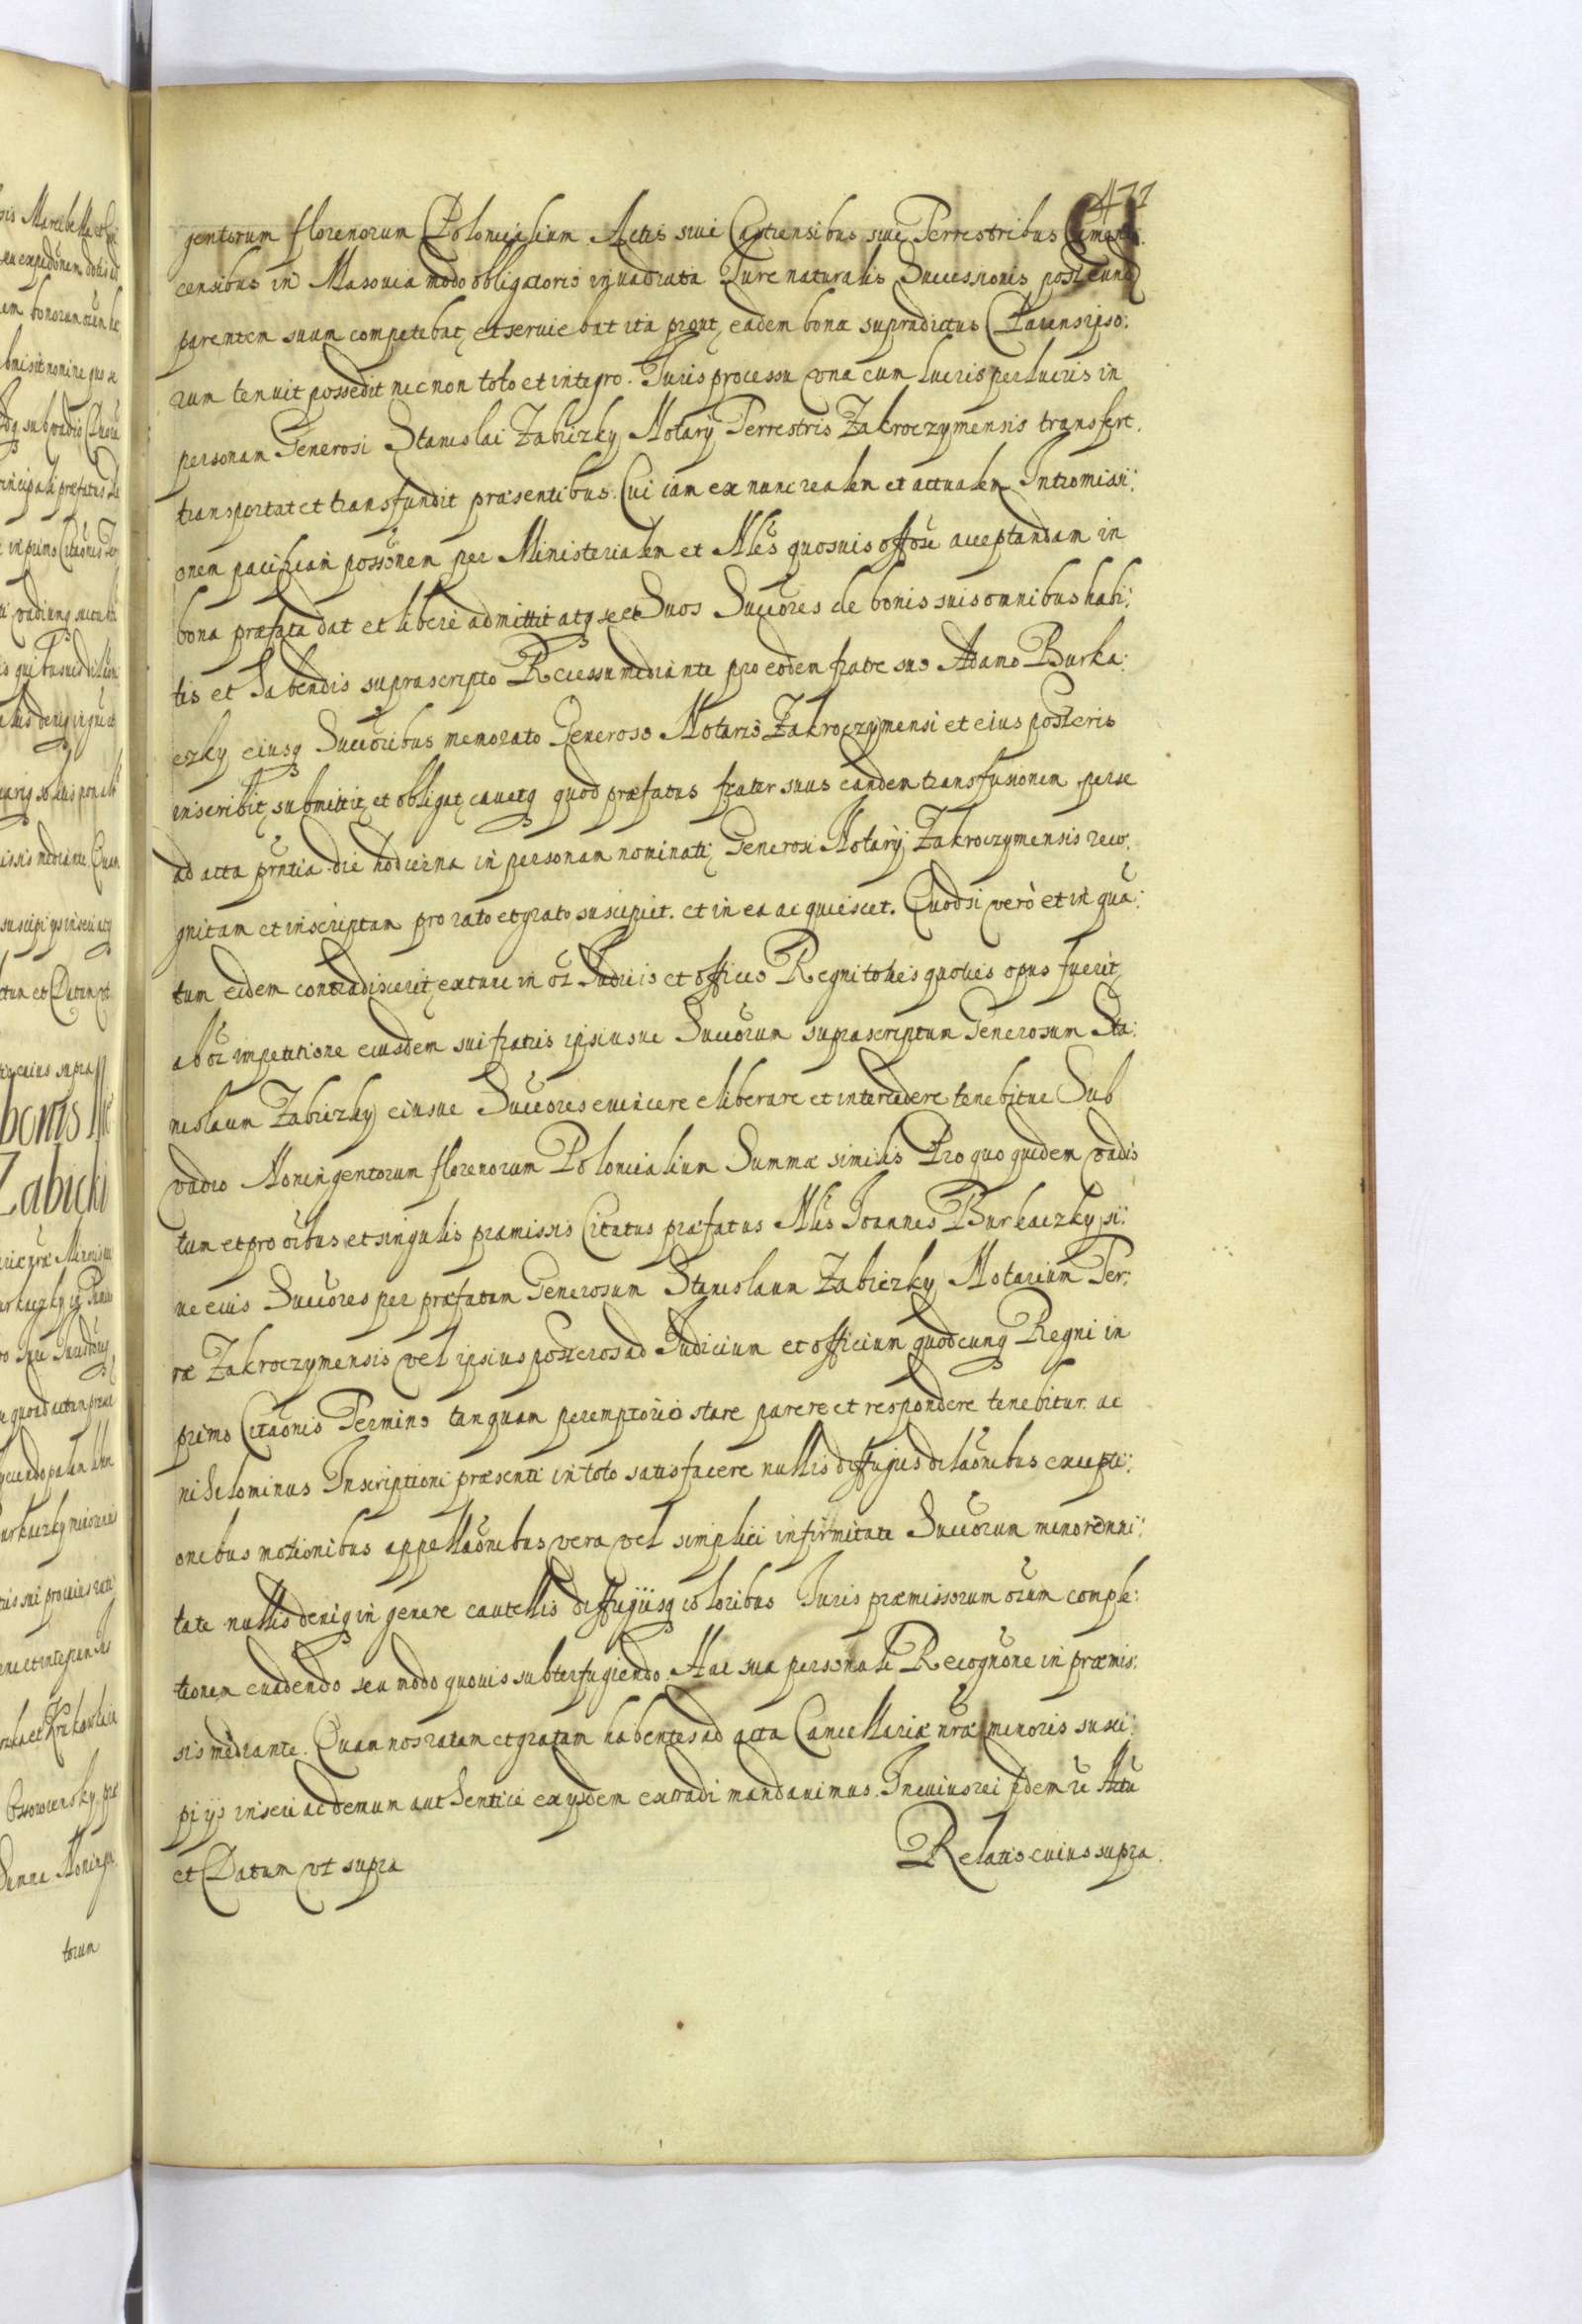 477
gentorum florenorum Polonicalium Actis sive Castrensibus sive Terrestribus
censibus in Masovia modo obligatorio invadiata Jure naturalis Successionis post eund
parentem suum competebat et serviebat ita prout eadem bona supradictus Parens ipso:
rum tenuit possedit nec non toto et integro Juris processu una cum lucris perlucris in
personam Generosi Stanislai Zabiczky Notarij Terrestris Zakroczymensis transfert.
transportat et transfundit præsentibus. Cui iam ex nunc realem et actualem Intromissi:
onem pacificam possonem per Ministerialem et Nles quosvis offose acceptandam in
bona præfata dat et libere admittit atq se et Suos Succores de bonis suis omnibus habi:
tis et habendis suprascripto Recessu mediante pro eodem fratre suo Adamo Burka:
czky eiusq Succoribus memorato Generoso Notario Zakroczymensi et eius posteris
inscribit submittit et obligat cavetq quod præfatus frater suus eandem transfusionem per se
ad acta prntia die hodierna in personam nominati Generosi Notarij Zakroczymensis reco:
gnitam et inscriptam pro rato et grato suscipiet. et in ea acquiescet. Quodsi verò et in qua:
tum eidem contradixerit, extunc in oi Judicio et officio Regni toties quoties opus fuerit,
ab oi impetitione eiusdem sui fratris ipsiusve Succorum suprascriptum Generosum Sta:
nislaum Zabiczky eiusve Succores evincere eliberare et intercedere tenebitur Sub
vadio Noningentorum florenorum Polonicalium Summæ similis Pro quo quidem vadio
tum et pro oibus et singulis præmissis Citatus præfatus Nlis Joannes Burkaczky, si:
ve eius Succores per præfatum Generosum Stanislaum Zabiczky Notarium Ter:
ræ Zakroczymensis vel ipsius posteros ad Judicium et officium quodcunq Regni in
primo Citaonis Termino tanquam peremptorio stare parere et respondere tenebitur. ac
nihilominus Inscriptioni præsenti in toto satisfacere nullis diffugijs dilaonibus excepti:
onibus motionibus appellaonibus vera vel simplici infirmitate Succorum minorenni:
tate nullis deniq in genere cautellis diffugijsq coloribus Juris præmissorum oium comple:
tionem evadendo seu modo quovis subterfugiendo. Hac sua personali Recognone in præmis:
sis mediante. Quam nos ratam et gratam habentes ad acta Cancellariæ nræ minoris susci:
pi ijs inseri ac demum authentice ex ijsdem extradi mandavimus. In cuius rei fidem re Actu
et Datum vt supra
Relatio cuius supra.